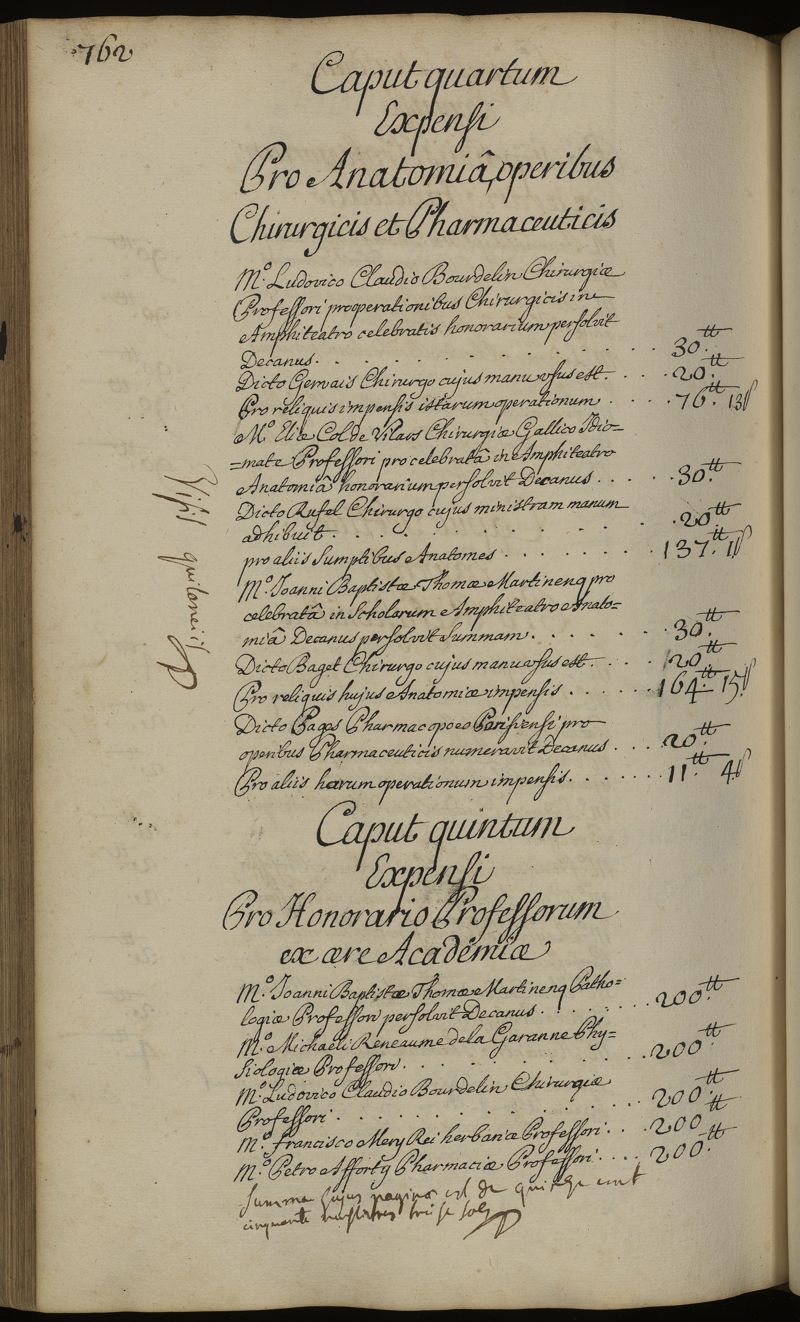 762
Caput quartum
Expensi
Pro Anatomiâ, operibus
Chirurgicis et Pharmaceuticis
M.º Ludovico Claudio Bourdelin Chirurgiæ
Professori pro operationibus Chirurgicis in
Amphiteatro celebratis honorarium persolvit
Decanus. . . . . . . . . 30.tt
Dicto Gervais Chirurgo cujus manu usus est. . . . 20.tt
Pro reliquis impensis istarum operationum . . . . 76.tt 13ſ
M.º Eliæ Col de Vilars Chirurgiæ Gallico Idio=
=mate Professori pro celebratâ in Amphiteatro
Anatomiâ honorarium persolvit Decanus . . . . . 30.tt
Dicto Rufel Chirurgo cujus ministram manum
adhibuit . . . . . . . . . 20.tt
pro aliis Sumptibus Anatomes . . . . . . . 137.tt 1ſ
M.º Joanni Baptistæ Thomæ Martinenq pro
celebratâ in Scholarum Amphiteatro Anato=
miâ Decanus persolvit Summam . . . . . . 30.tt
Dicto Baget Chirurgo cujus manu usus est. . . . 20.tt
Pro reliquis hujus Anatomiæ impensis . . . . . . 164.tt 15ſ
Dicto Pages Pharmacopoeo Parisiensi pro
operibus Pharmaceuticis numeravit Decanus . . . 20.tt
Pro aliis harum operationum impensis. . . . . . 11.tt 4ſ
Caput quintum
Expensi
Pro Honorario Professorum
ex ære Académiæ
M.º Joanni Baptistæ Thomæ Martinenq Patho=
logiæ Professori persolvit Decanus . . . . . . 200.tt
M.º Michaeli Reneaume de la Garanne Phy=
siologiæ Professori . . . . . . . . 200.tt
M.º Ludovico Claudio Bourdelin Chirurgiæ
Professori . . . . . . . . . 200.tt
M.º Francisco Mery Rei herbariæ Professori . . . 200.tt
M.º Petro Afforty Pharmaciæ Professori . . . . 200.tt
Summa hujus paginæ est de quinze cent
cinquante neuf livres treize sols